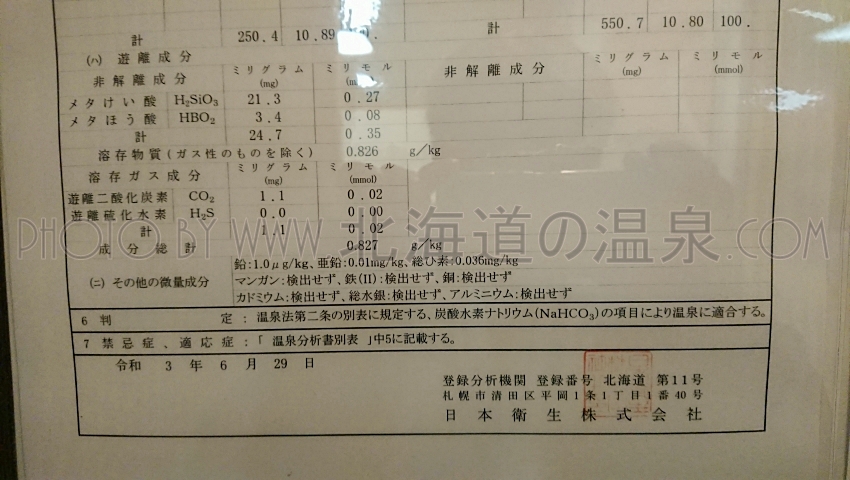 計 250.4 10.89 計 550.7 10.80 100.
(ハ) 遊離成分
非解離成分 ミリグラム (mg) ミリモル 非解離成分 ミリグラム (mg) ミリモル (mmol)
メタけい酸 H₂SiO₃ 21.3 0.27
メタほう酸 HBO₂ 3.4 0.08
計 24.7 0.35
溶存物質(ガス性のものを除く) 0.826 g/kg
溶存ガス成分 ミリグラム (mg) ミリモル (mmol)
遊離二酸化炭素 CO₂ 1.1 0.02
遊離硫化水素 H₂S 0.0 0.00
計 1.1 0.02
成分総計 0.827 g/kg
(ニ) その他の微量成分 鉛:1.0μg/kg、亜鉛:0.01mg/kg、総ひ素:0.036mg/kg
マンガン:検出せず、鉄(II):検出せず、銅:検出せず
カドミウム:検出せず、総水銀:検出せず、アルミニウム:検出せず
6 判定:温泉法第二条の別表に規定する、炭酸水素ナトリウム(NaHCO₃)の項目により温泉に適合する。
7 禁忌症、適応症:「 温泉分析書別表 」中5に記載する。
令和 3 年 6 月 29 日
登録分析機関 登録番号 北海道 第11号
札幌市清田区平岡1条1丁目1番40号
日本衛生株式会社
PHOTO BY WWW.北海道の温泉.COM